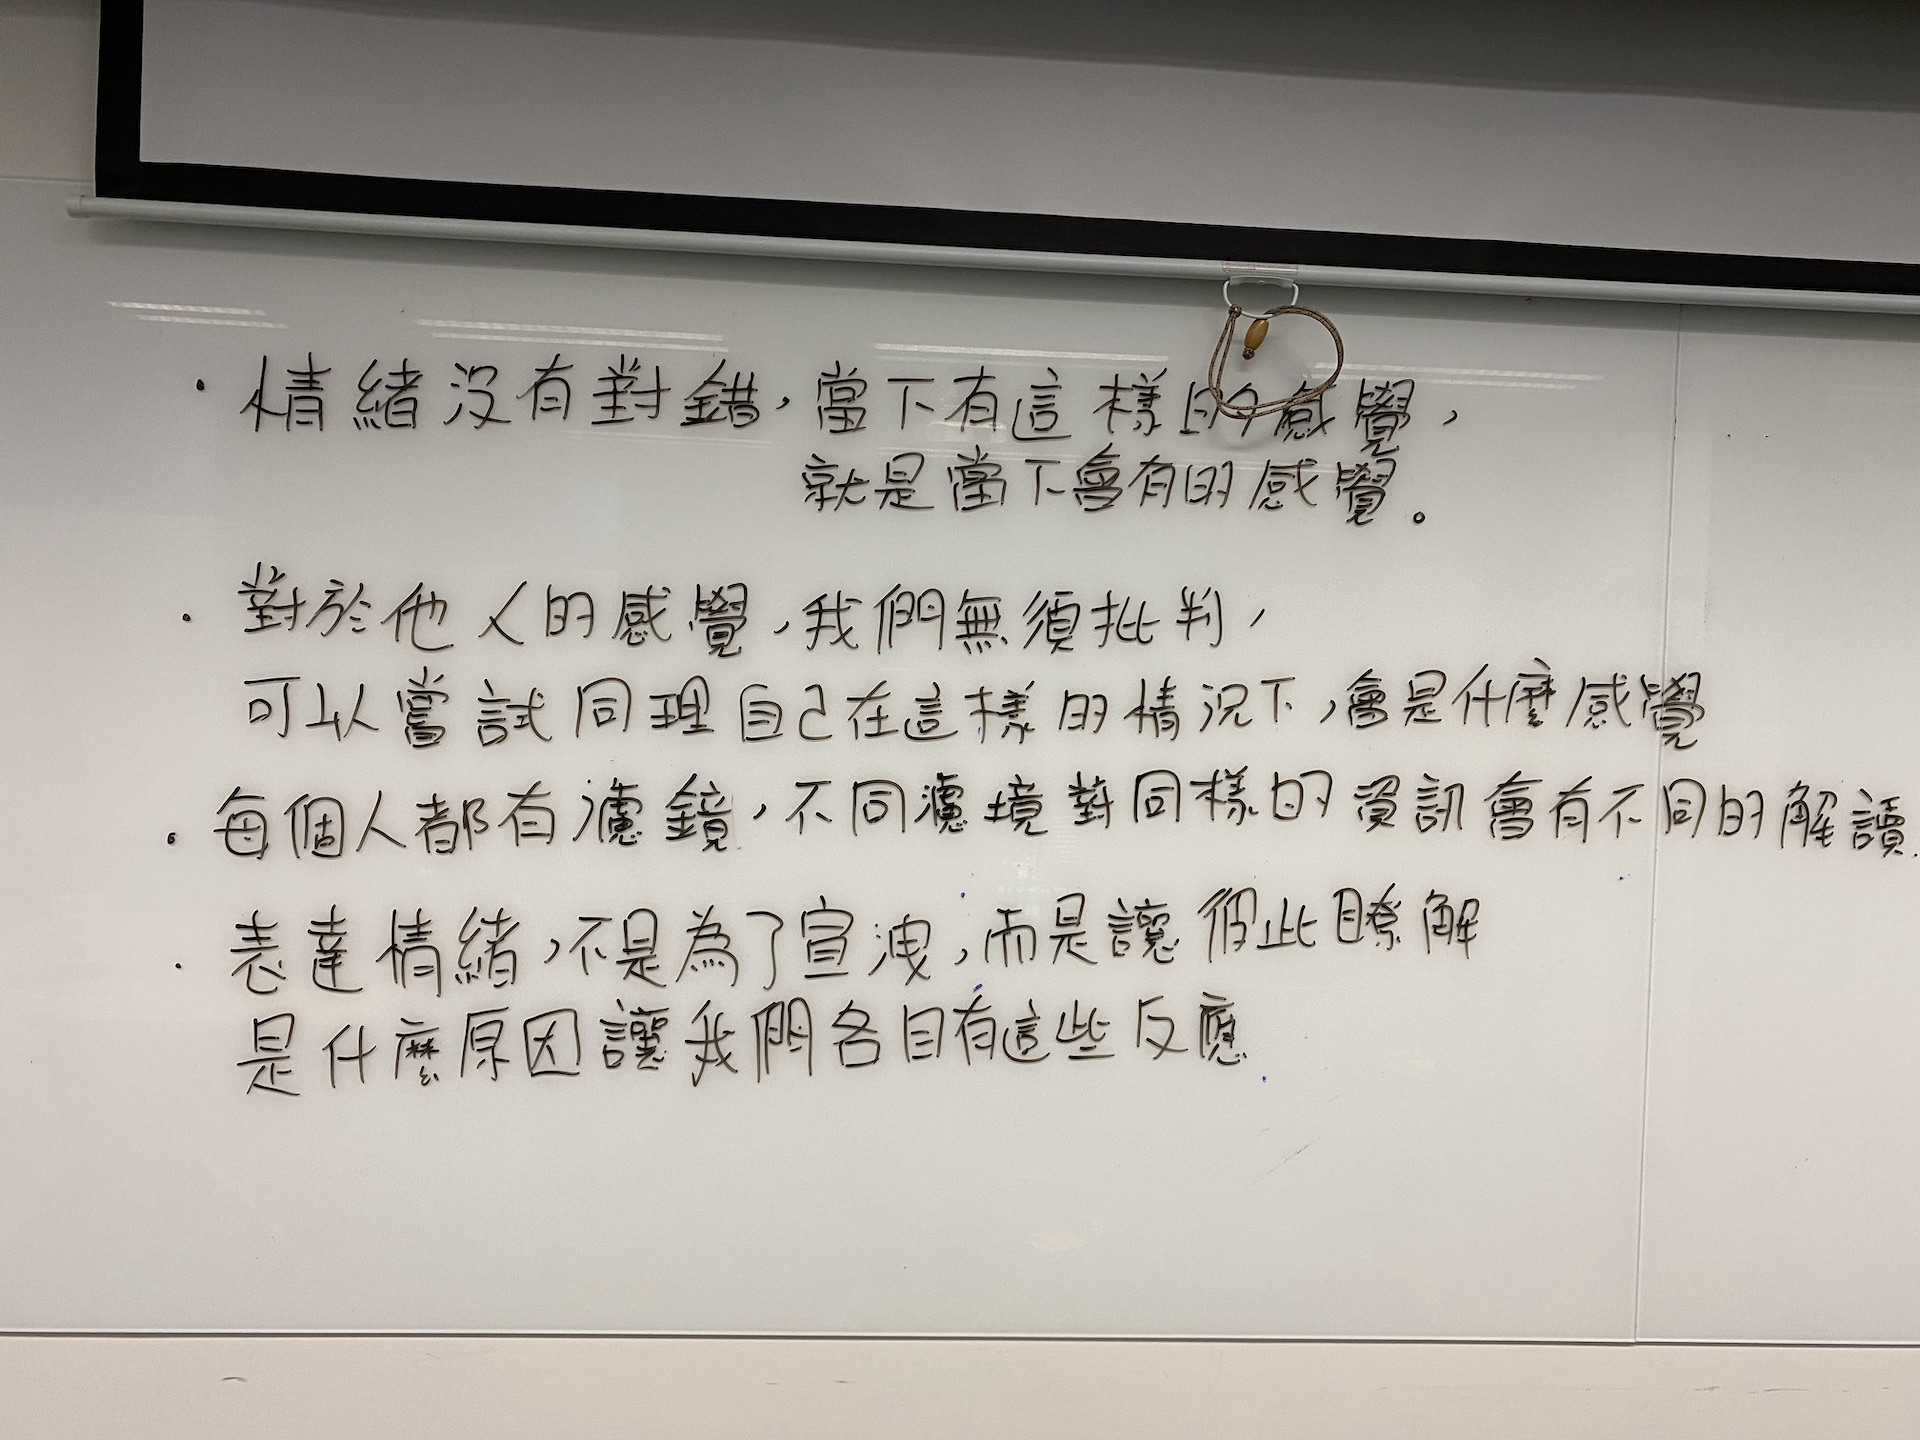 · 情緒沒有對錯，當下有這樣的感覺，
就是當下會有的感覺。
· 對於他人的感覺，我們無須批判，
可以嘗試同理自己在這樣的情況下，會是什麼感覺
· 每個人都有濾鏡，不同濾境對同樣的資訊會有不同的解讀.
· 表達情緒，不是為了宣洩，而是讓彼此瞭解
是什麼原因讓我們各自有這些反應